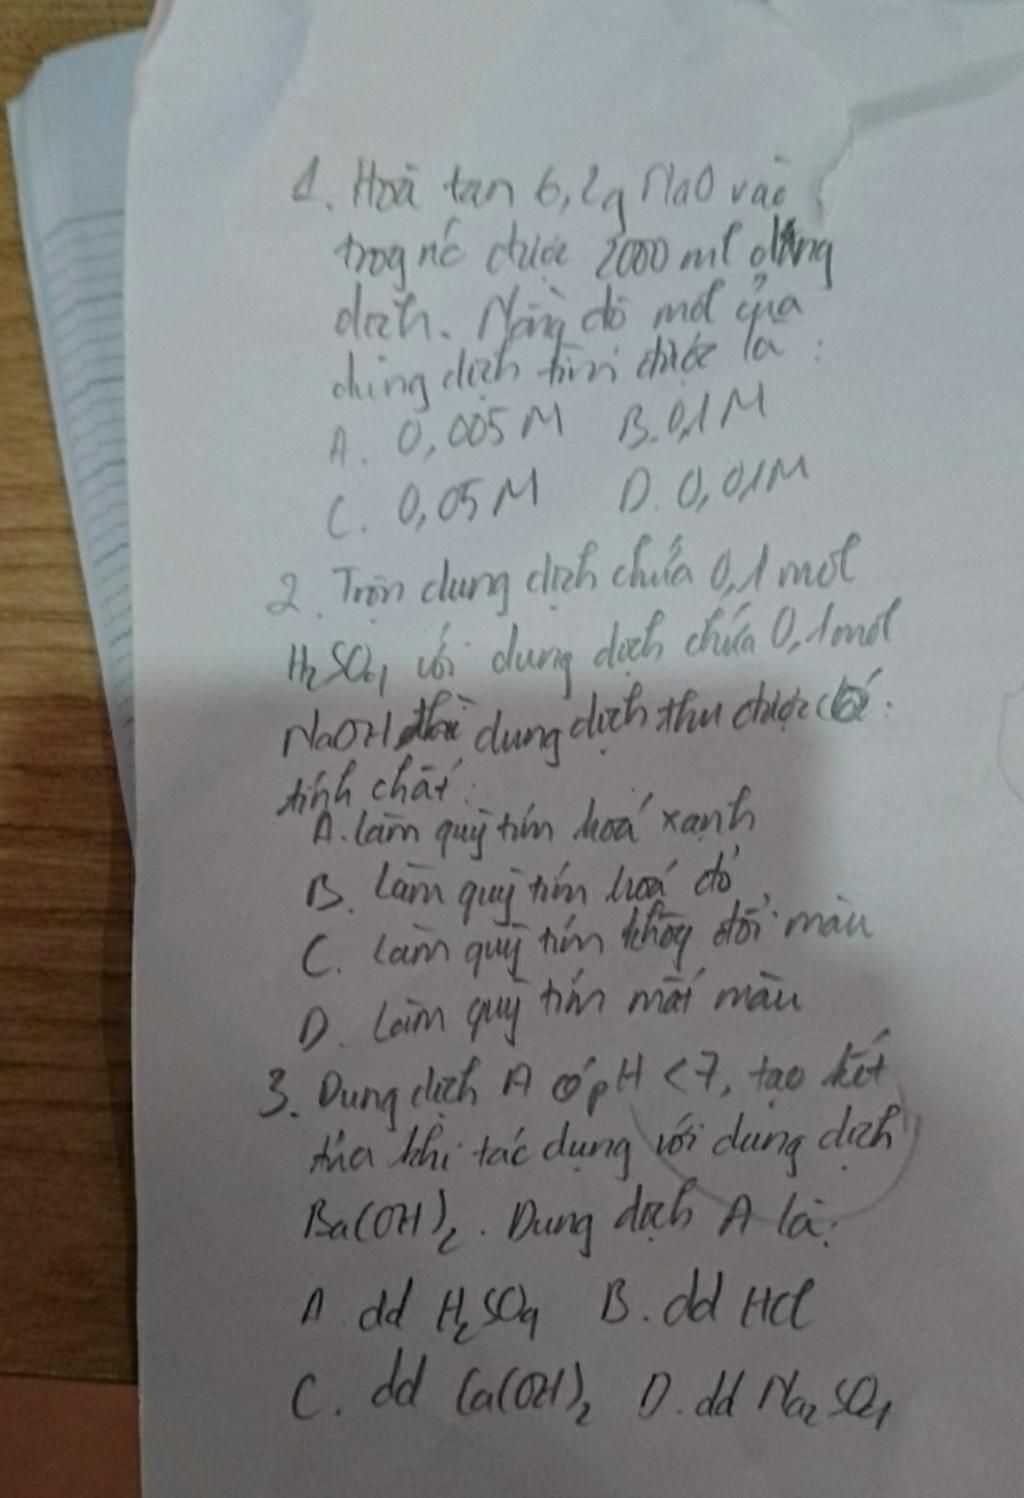 1. Hoà tan 6,2g NaO vào
trog nc được 2000 ml dung
dịch. Nồng độ mol của
dung dịch được là :
A. 0,005M B. 0,1M
C. 0,05M D. 0,01M
2. Trộn dung dịch chứa 0,1 mol
H₂SO₄ với dung dịch chứa 0,1mol
NaOH thì dung dịch thu được có :
tính chất :
A. làm quỳ tím hoá xanh
B. làm quỳ tím hoá đỏ
C. làm quỳ tím không đổi màu
D. làm quỳ tím mất màu
3. Dung dịch A có pH < 7, tạo kết
tủa khi tác dụng với dung dịch
Ba(OH)₂. Dung dịch A là:
A dd H₂SO₄ B. dd HCl
C. dd Ca(OH)₂ D. dd Na₂SO₄